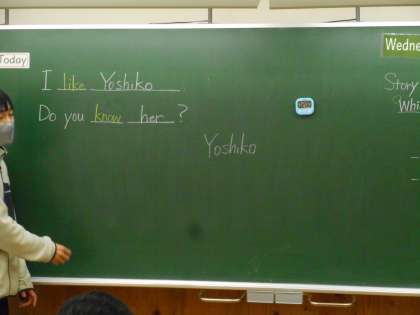 Today
I like Yoshiko.
Do you know her?
Yoshiko
Story